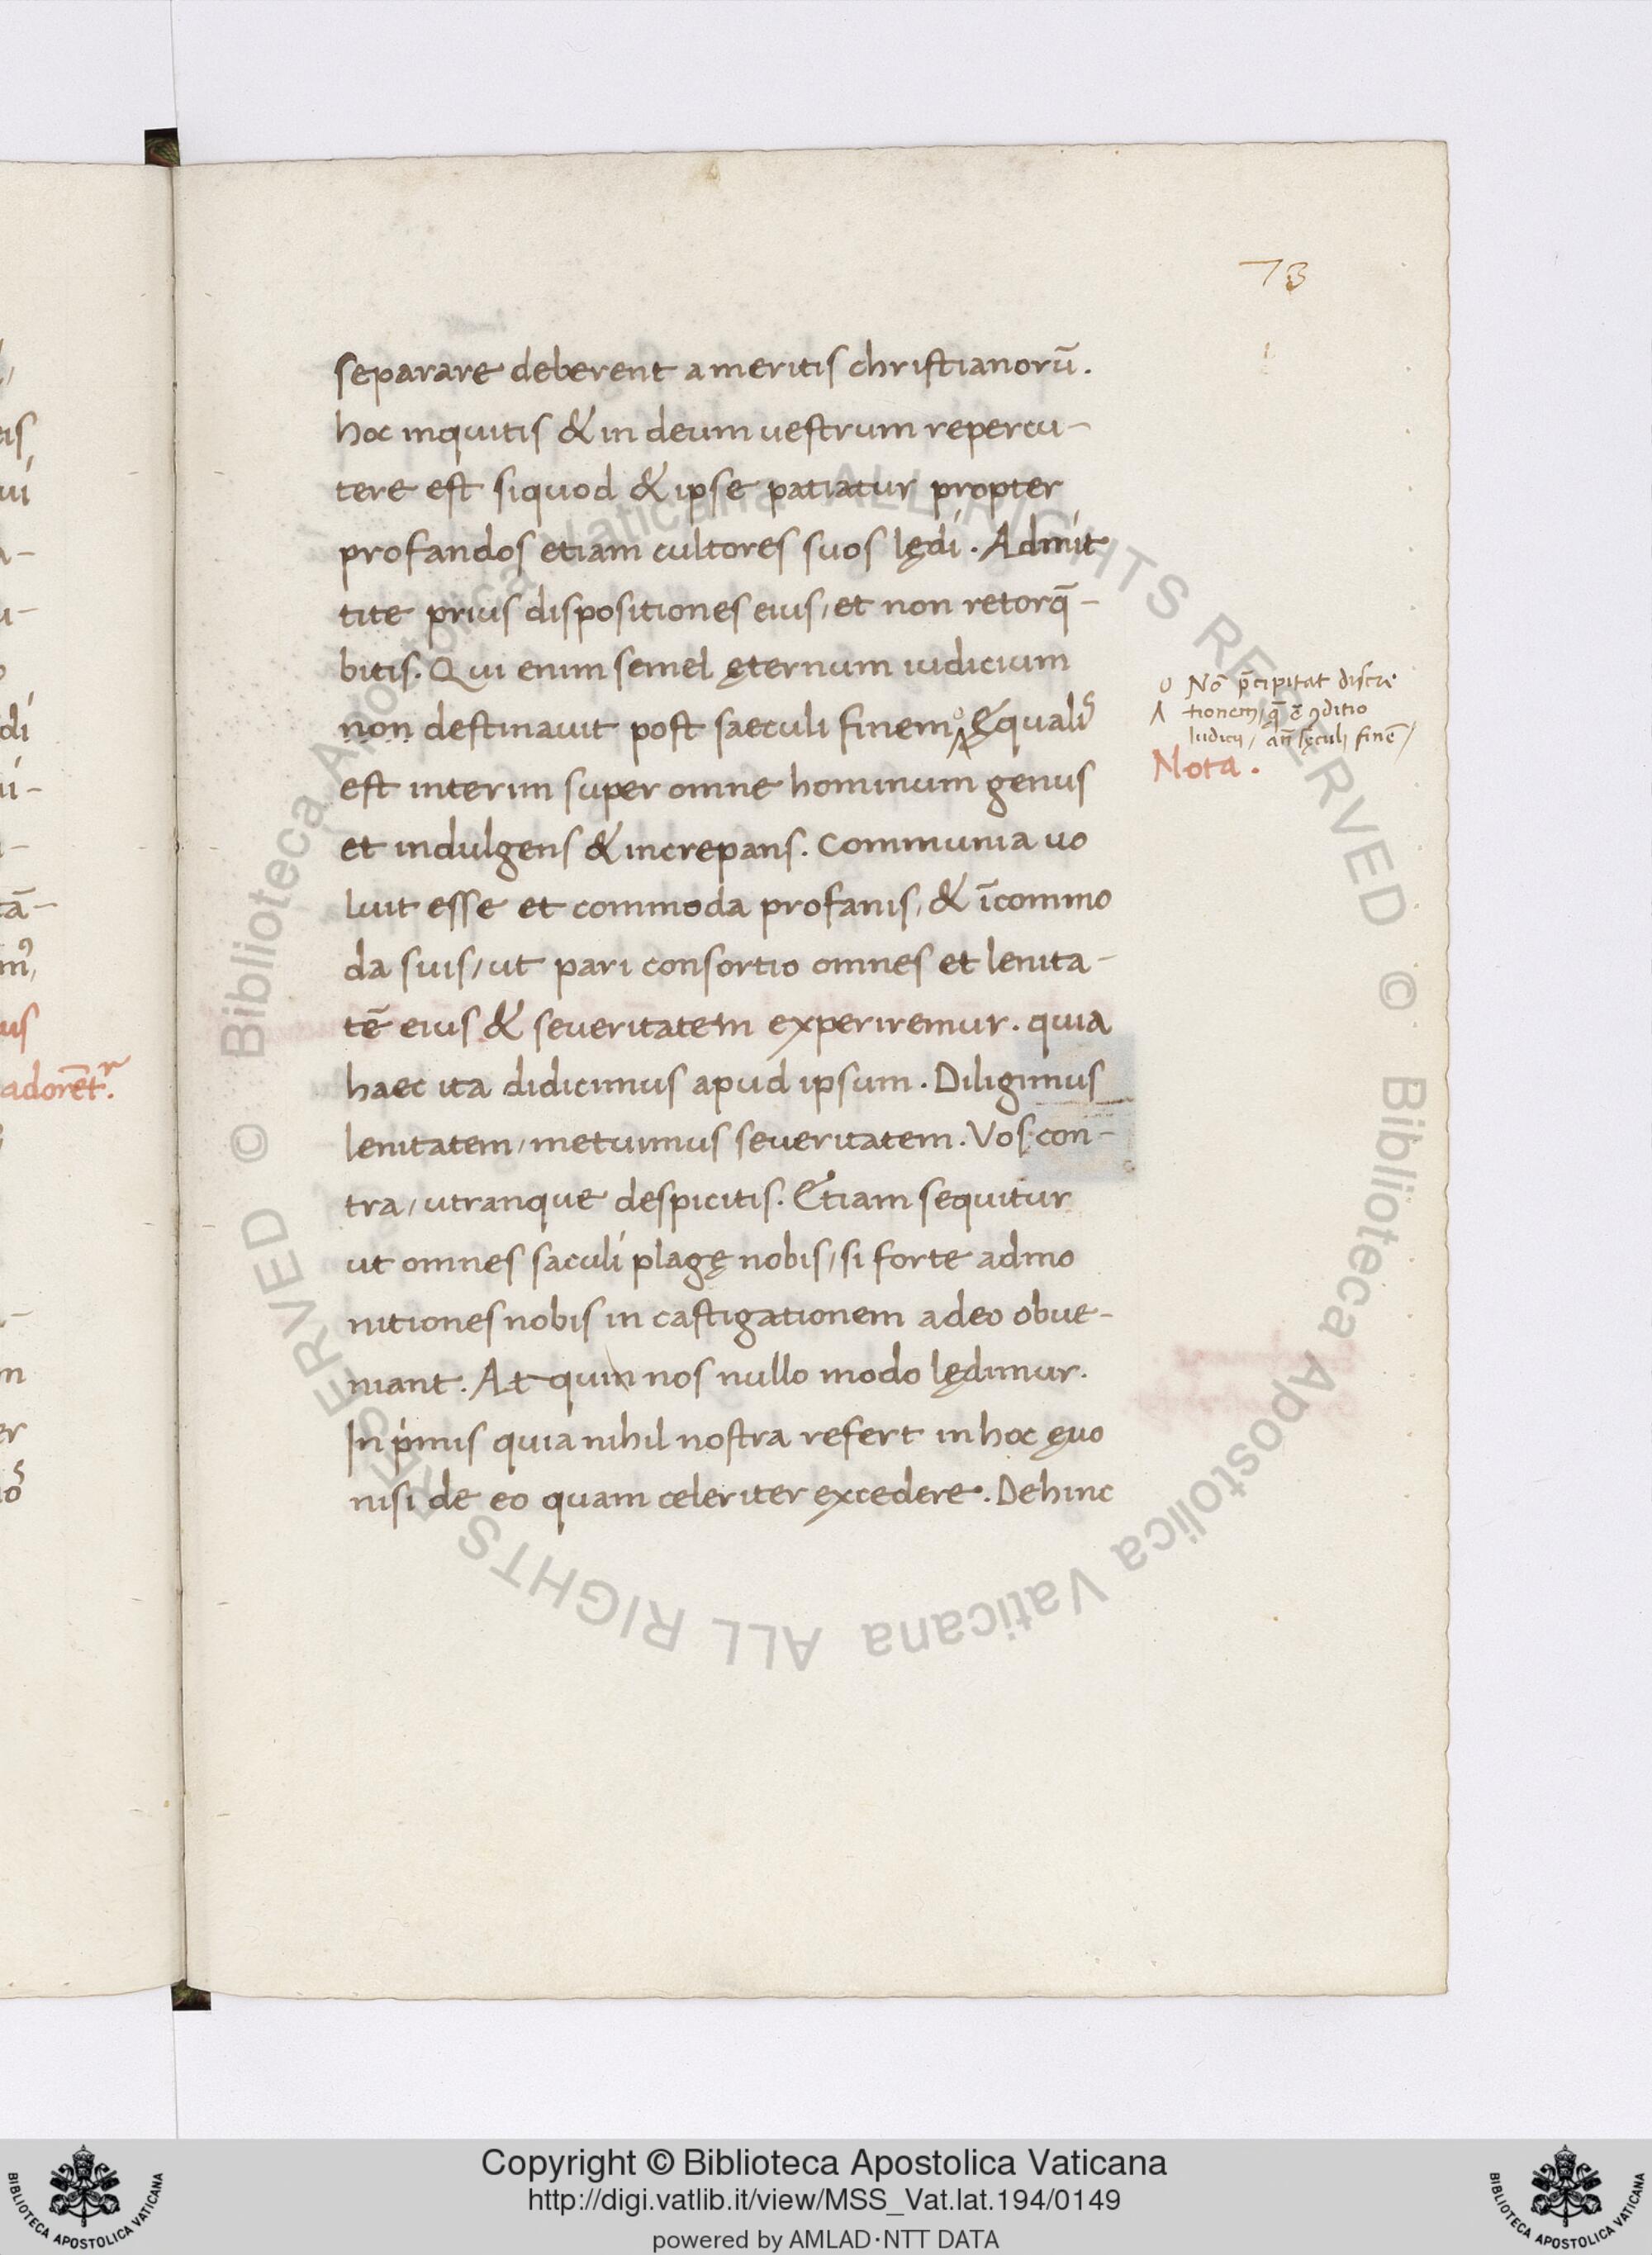 73
separare deberent a meritis christianorū.
hoc inquitis & in deum uestrum repercu-
tere est siquod & ipse patiatur propter
profandos etiam cultores suos lędi. Admit
tite prius dispositiones eius, et non retorq̄-
bitis. Qui enim semel ęternum iudicium
non destinauit post saeculi finem, Ęqualis
est interim super omne hominum genus
et indulgens & increpans. Communia uo
luit esse et commoda profanis, & īcommo
da suis, ut pari consortio omnes et lenita-
tē eius & seueritatem experiremur. quia
haec ita didicimus apud ipsum. Diligimus
lenitatem, metuimus seueritatem. Vos con-
tra, utranque despicitis. Etiam sequitur
ut omnes saculi plagę nobis, si forte admo
nitiones nobis in castigationem a deo obue-
niant. At quin nos nullo modo lędimur.
In pimis quia nihil nostra refert in hoc ęuo
nisi de eo quam celeriter excedere. Dehinc
Nō p̄cipitat discre
tionem, q̄ ē ꝯditio
Iudicij, an̄ sęculj finē
Nota.
tis
ui
di
tā-
us
adorēt.
er
© Biblioteca Apostolica Vaticana ALL RIGHTS RESERVED © Biblioteca Apostolica Vaticana ALL RIGHTS RESERVED
Copyright © Biblioteca Apostolica Vaticana
http://digi.vatlib.it/view/MSS_Vat.lat.194/0149
powered by AMLAD·NTT DATA
BIBLIOTECA APOSTOLICA VATICANA
BIBLIOTECA APOSTOLICA VATICANA